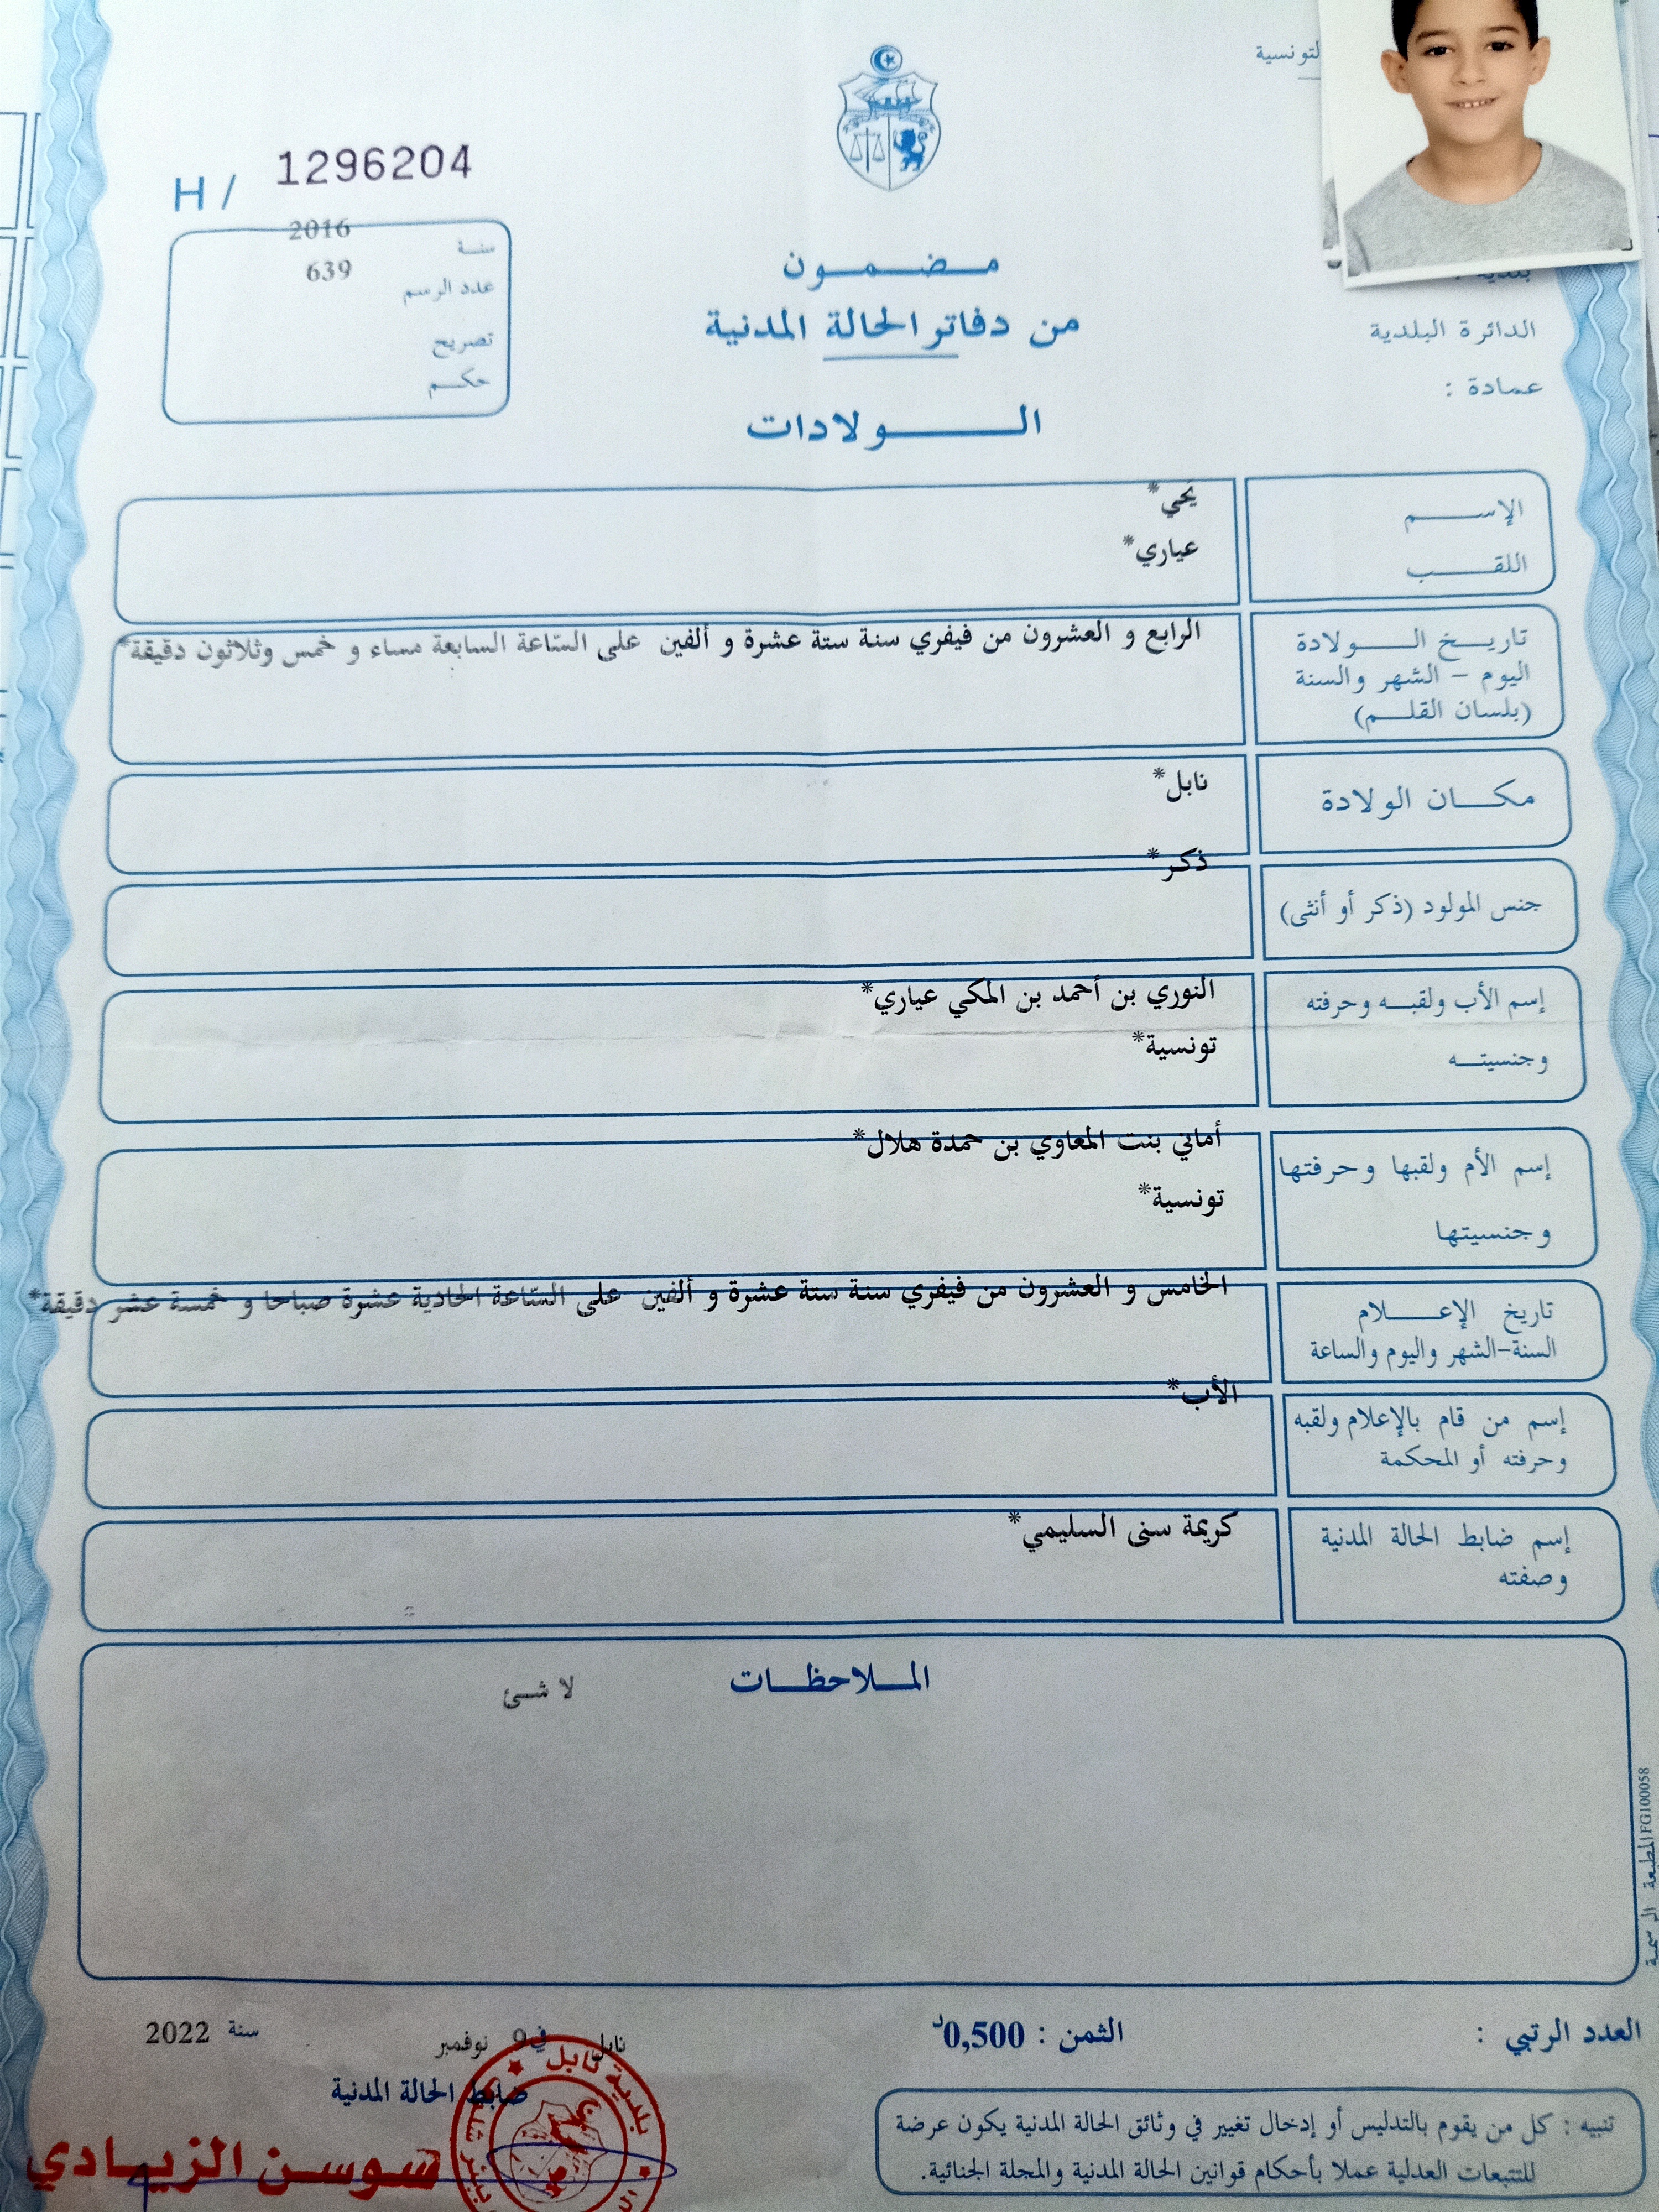 التونسية
H / 1296204
سنة 2016
عدد الرسم 639
تصريح
حكم
مضمون
من دفاتر الحالة المدنية
الولادات
بلدية :
الدائرة البلدية
عمادة :
الإسم يحي*
اللقب عياري*
تاريخ الولادة الرابع و العشرون من فيفري سنة ستة عشرة و ألفين على السّاعة السابعة مساء و خمس وثلاثون دقيقة*
اليوم - الشهر والسنة
(بلسان القلم)
مكان الولادة نابل*
ذكر*
جنس المولود (ذكر أو أنثى)
إسم الأب ولقبه وحرفته النوري بن أحمد بن المكي عياري*
وجنسيته تونسية*
إسم الأم ولقبها وحرفتها أماني بنت المعاوي بن حمدة هلال*
وجنسيتها تونسية*
تاريخ الإعلام الخامس و العشرون من فيفري سنة ستة عشرة و ألفين على السّاعة الحادية عشرة صباحا و خمسة عشر دقيقة*
السنة-الشهر واليوم والساعة
الأب*
إسم من قام بالإعلام ولقبه
وحرفته أو المحكمة
إسم ضابط الحالة المدنية كريمة سنى السليمي*
وصفته
الملاحظات
لا شئ
المطبعة الرسمية FG100058
العدد الرتبي :
الثمن : 0,500د
نابل في 9 نوفمبر سنة 2022
ضابط الحالة المدنية
سوسن الزيادي
بلدية نابل
تنبيه : كل من يقوم بالتدليس أو إدخال تغيير في وثائق الحالة المدنية يكون عرضة
للتتبعات العدلية عملا بأحكام قوانين الحالة المدنية والمجلة الجنائية.